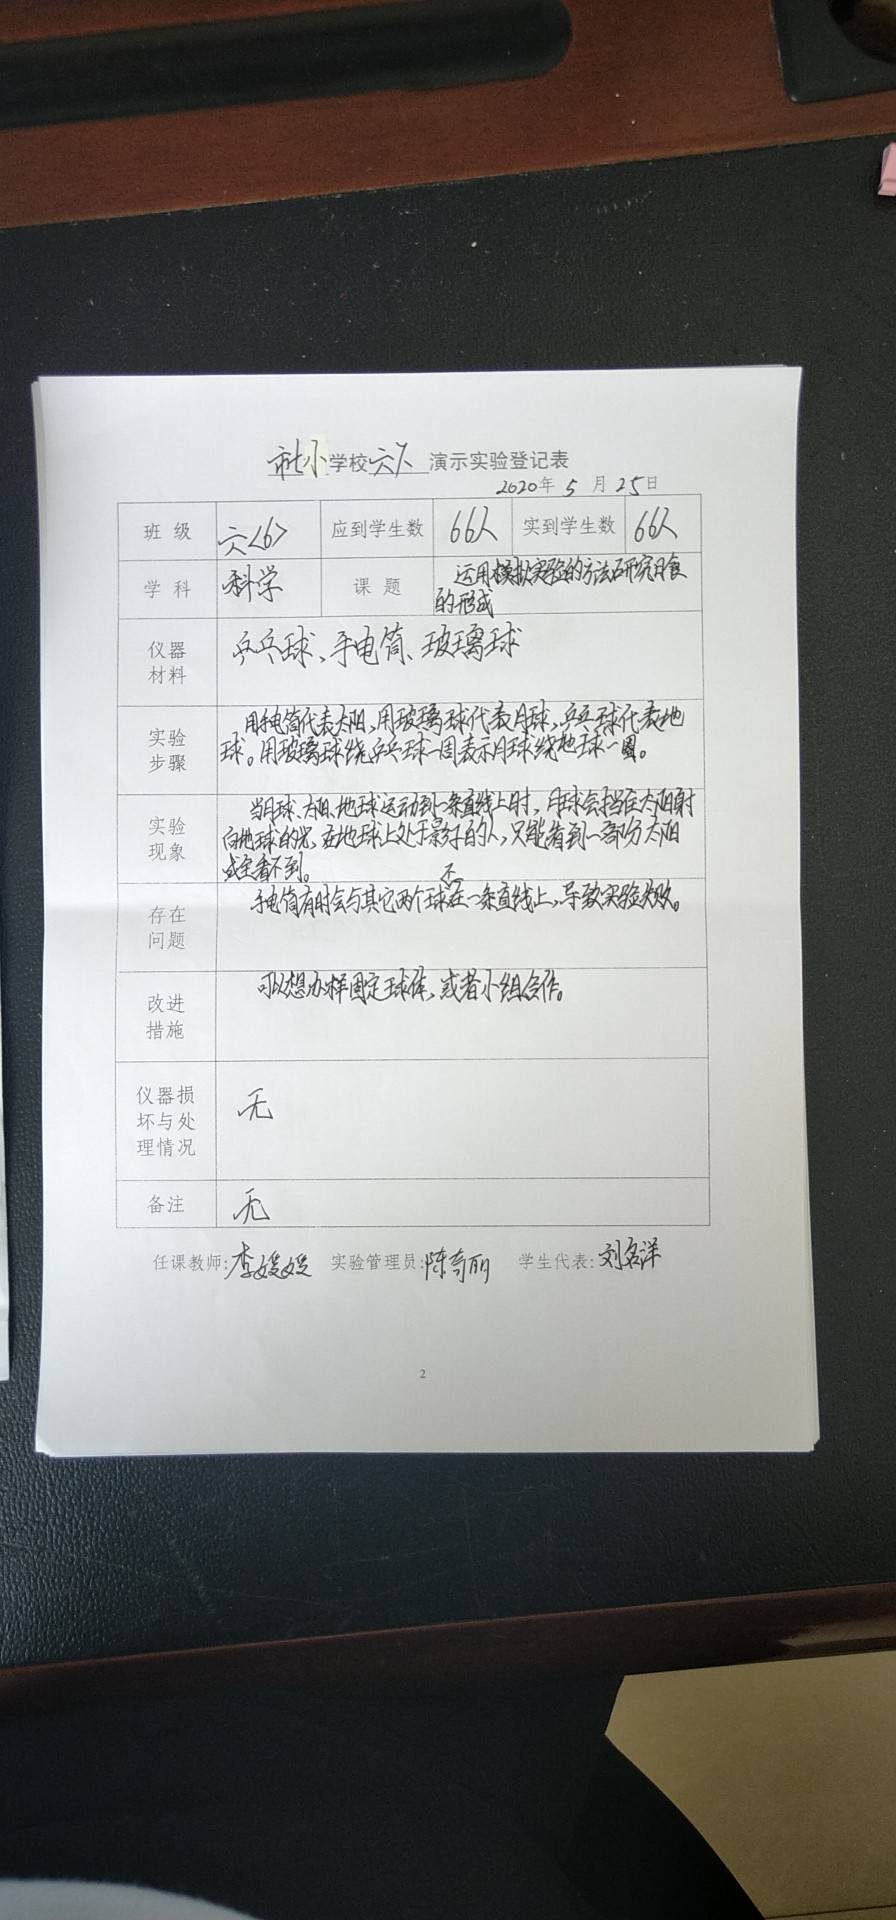 市七小学校六下演示实验登记表
2020年5月25日
班级 六<6> 应到学生数 66人 实到学生数 66人
学科 科学 课题 运用模拟实验的方法研究日食
的形成
仪器
材料
乒乓球、手电筒、玻璃球
实验
步骤
用手电筒代表太阳,用玻璃球代表月球,乒乓球代表地
球。用玻璃球绕乒乓球一周表示月球绕地球一圈。
实验
现象
当月球、太阳、地球运动到一条直线上时,月球会挡住太阳射
向地球的光,在地球上处于影子的人,只能看到一部分太阳
或全看不到。
存在
问题
手电筒有时会与其它两个球不在一条直线上,导致实验失败。
改进
措施
可以想办法固定球体,或者小组合作。
仪器损
坏与处
理情况
无
备注 无
任课教师:李媛媛 实验管理员:陈奇丽 学生代表:刘名洋
2